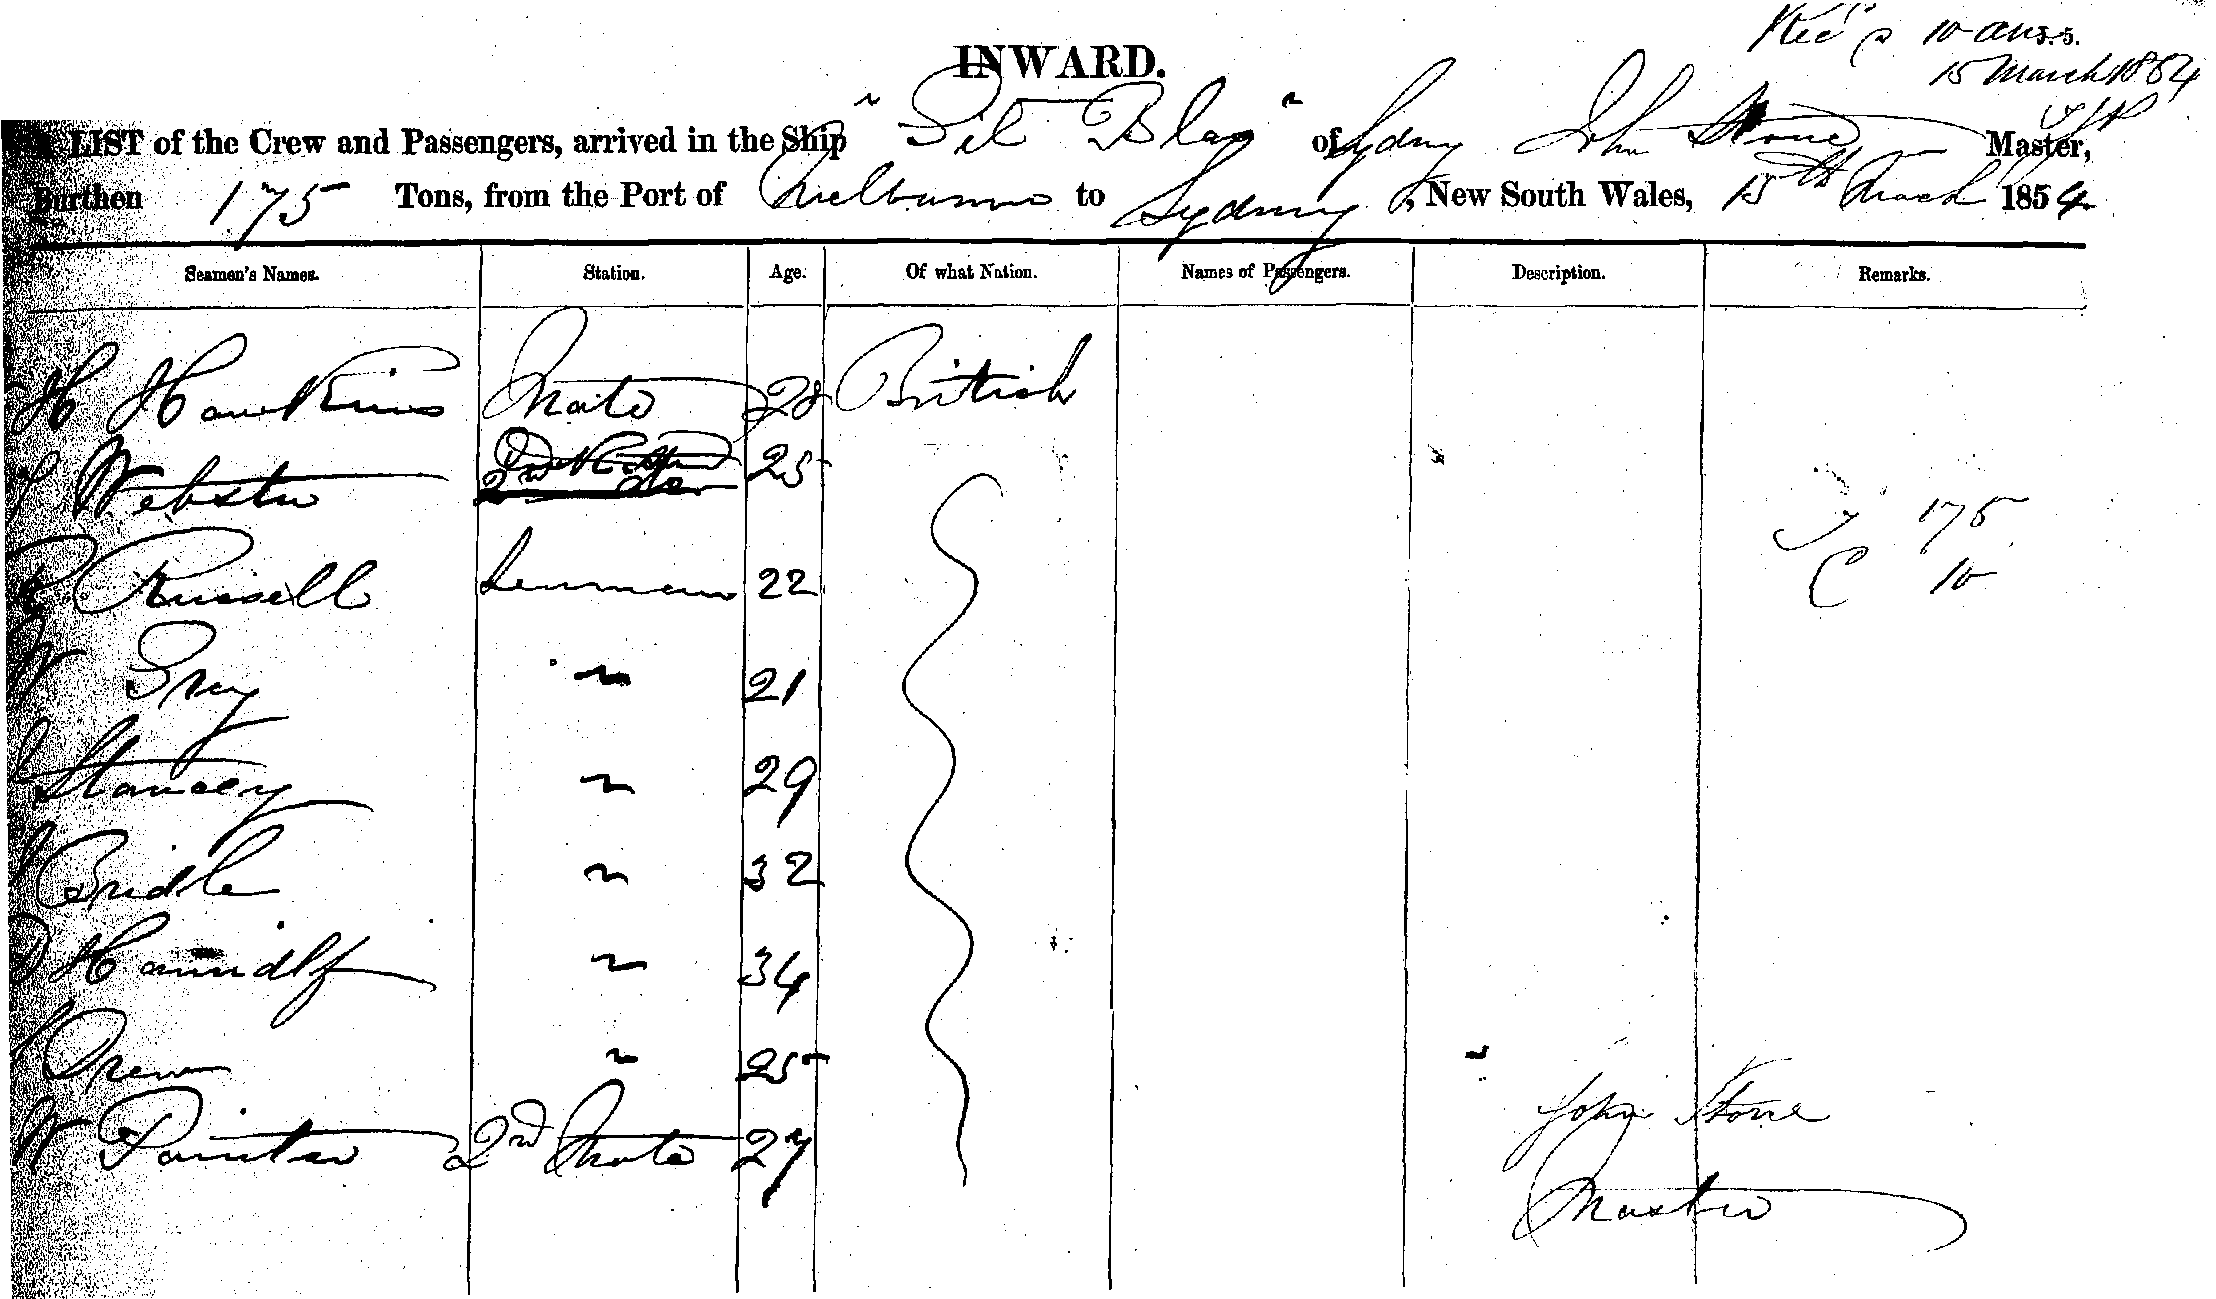 10 am
15 March 1854
INWARD.
LIST of the Crew and Passengers, arrived in the Ship "Gil Blas" of Sydney John Stone Master,
Burthen 175 Tons, from the Port of Melbourne to Sydney New South Wales, 15th March 1854
Seamen's Names. Station. Age. Of what Nation. Names of Passengers. Description. Remarks.
H Hawkins Mate 28 British
Webster 25
T 175
Russell Seaman 22
C 10
W Gray " 21
Stancey " 29
Bridle " 32
" 34
Drew " 25
John Stone
W Painter 2nd Mate 27
Master